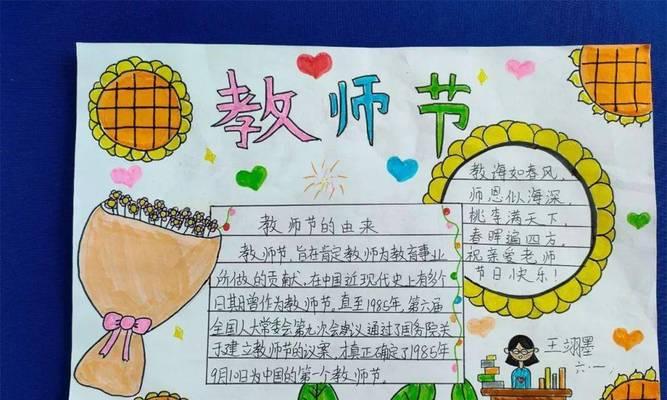 教师节
教诲如春风，
师恩似海深，
桃李满天下，
春晖遍四方。
祝亲爱老师
节日快乐！
教师节的由来
教师节，旨在肯定教师为教育事业
所做的贡献，在中国近现代史上有多个
日期曾作为教师节。直至1985年，第六届
全国人大常委会第九次会议通过了国务院关
于建立教师节的议案，才真正确定了1985年
9月10日为中国的第一个教师节。
王翊墨
六.一.